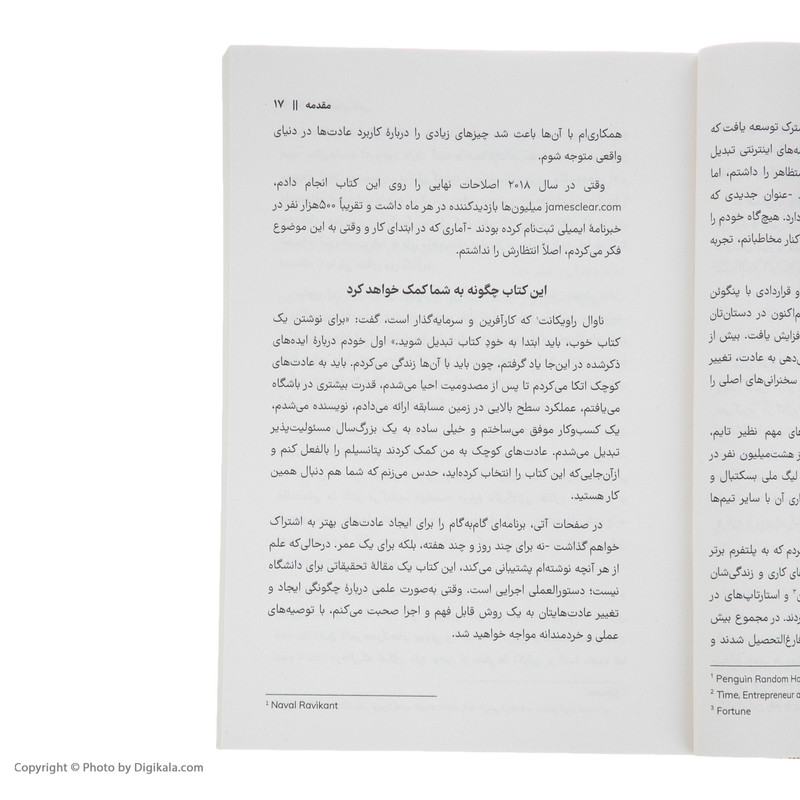 مقدمه || ۱۷
همکاری‌ام با آن‌ها باعث شد چیزهای زیادی را دربارهٔ کاربرد عادت‌ها در دنیای
واقعی متوجه شوم.
وقتی در سال ۲۰۱۸ اصلاحات نهایی را روی این کتاب انجام دادم،
jamesclear.com میلیون‌ها بازدیدکننده در هر ماه داشت و تقریباً ۵۰۰هزار نفر در
خبرنامهٔ ایمیلی ثبت‌نام کرده بودند -آماری که در ابتدای کار و وقتی به این موضوع
فکر می‌کردم، اصلاً انتظارش را نداشتم.
این کتاب چگونه به شما کمک خواهد کرد
ناوال راویکانت¹ که کارآفرین و سرمایه‌گذار است، گفت: «برای نوشتن یک
کتاب خوب، باید ابتدا به خودِ کتاب تبدیل شوید.» اول خودم دربارهٔ ایده‌های
ذکرشده در این‌جا یاد گرفتم، چون باید با آن‌ها زندگی می‌کردم. باید به عادت‌های
کوچک اتکا می‌کردم تا پس از مصدومیت احیا می‌شدم، قدرت بیشتری در باشگاه
می‌یافتم، عملکرد سطح بالایی در زمین مسابقه ارائه می‌دادم، نویسنده می‌شدم،
یک کسب‌وکار موفق می‌ساختم و خیلی ساده به یک بزرگ‌سال مسئولیت‌پذیر
تبدیل می‌شدم. عادت‌های کوچک به من کمک کردند پتانسیلم را بالفعل کنم و
ازآن‌جایی‌که این کتاب را انتخاب کرده‌اید، حدس می‌زنم که شما هم دنبال همین
کار هستید.
در صفحات آتی، برنامه‌ای گام‌به‌گام را برای ایجاد عادت‌های بهتر به اشتراک
خواهم گذاشت -نه برای چند روز و چند هفته، بلکه برای یک عمر. درحالی‌که علم
از هر آنچه نوشته‌ام پشتیبانی می‌کند، این کتاب یک مقالهٔ تحقیقاتی برای دانشگاه
نیست؛ دستورالعملی اجرایی است. وقتی به‌صورت علمی دربارهٔ چگونگی ایجاد و
تغییر عادت‌هایتان به یک روش قابل فهم و اجرا صحبت می‌کنم، با توصیه‌های
عملی و خردمندانه مواجه خواهید شد.
¹ Naval Ravikant
ترک توسعه یافت که
‌های اینترنتی تبدیل
تظاهر را داشتم، اما
-عنوان جدیدی که
دارد. هیچ‌گاه خودم را
کنار مخاطبانم، تجربه
و قراردادی با پنگوئن
م‌اکنون در دستان‌تان
فزایش یافت. بیش از
‌دهی به عادت، تغییر
سخنرانی‌های اصلی را
‌های مهم نظیر تایم،
ز هشت‌میلیون نفر در
لیگ ملی بسکتبال و
اری آن با سایر تیم‌ها
ردم که به پلتفرم برتر
‌های کاری و زندگی‌شان
و استارتاپ‌های در
ردند. در مجموع بیش
فارغ‌التحصیل شدند و
¹ Penguin Random Ho
² Time, Entrepreneur a
³ Fortune
Copyright © Photo by Digikala.com